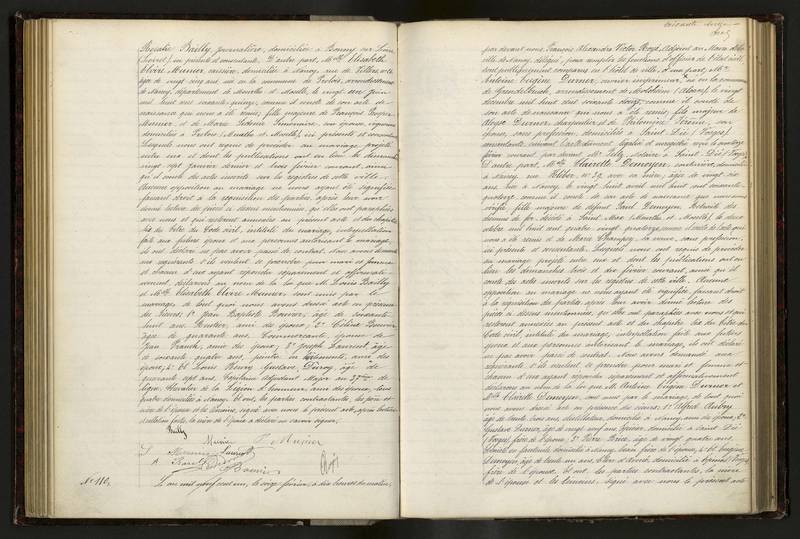 Rosalie Bailly, journalière, domiciliée à Bonny sur Loire
(Loiret) ici présente et consentante. D'autre part, Mlle Elisabeth
Elvire Munier, caissière, domiciliée à Nancy, rue de Villers,
âgée de vingt cinq ans née en la commune de Frolois, arrondissement
de Nancy, département de Meurthe et Moselle, le vingt un juin
mil huit cent soixante quinze, comme il conste de son acte de
naissance qui nous a été remis; fille majeure de François Prosper
Munier et de Marie
domiciliés à Frolois (Meurthe et Moselle), ici présents et consentants
Lesquels nous ont requis de procéder au mariage projeté
entre eux et dont les publications ont eu lieu les dimanches
vingt sept janvier dernier et trois février courant, ainsi
qu'il conste des actes inscrits sur les registres de cette ville.
Aucune opposition au mariage ne nous ayant été signifiée
faisant droit à la réquisition des parties, après leur avoir
donné lecture des pièces ci dessus mentionnées, qu'elles ont paraphées
avec nous et qui resteront annexées au présent acte et du chapitre
six du titre du Code civil, intitulé du mariage, interpellation
faite aux futurs époux et aux personnes autorisant le mariage,
ils ont déclaré ne pas avoir passé de contrat. Nous avons demandé
aux requérants s'ils veulent se prendre pour mari et femme
et chacun d'eux ayant répondu séparément et affirmative
ment, déclarons au nom de la loi que M. Louis Bailly
et Mlle Elisabeth Elvire Munier sont unis par le
mariage, de tout quoi nous avons dressé acte en présence
des sieurs: 1° Jean Baptiste Bouvier, âgé de soixante
huit ans, Rentier, ami des époux; 2° Céline Bouvier
âgée de quarante ans, Commerçante, épouse de
Jean amie des époux; 3° Joseph Laurent, âgé
de soixante quatre ans, peintre en bâtiments, ami des
époux; 4° et Louis Henry Gustave Diroy, âgé de
quarante sept ans, Capitaine Adjudant Major au 37ème de
ligne, Chevalier de la Légion d'honneur, ami des époux, tous
quatre domiciliés à Nancy. Et ont, les parties contractantes, les père et
mère de l'épouse et les témoins, signé avec nous le présent acte, après lecture
du tout faite, la mère de l'époux a déclaré ne savoir signer.
Bailly
Munier F. Munier
Laurent
Bouvier
N° 110. L'an mil neuf cent un, le seize février, à dix heures du matin,
par devant nous François Alexandre Victor Boyé, Adjoint au Maire de la
ville de Nancy, délégué pour remplir les fonctions d'officier de l'État civil,
sont publiquement comparus en l'hôtel de ville, d'une part, Mr.
Antoine Eugène Durner, ouvrier imprimeur, né en la commune
de Grendelbruch, arrondissement de Molsheim (Alsace), le vingt
décembre mil huit cent soixante douze, comme il conste de
son acte de naissance qui nous a été remis; fils majeur de
Aloyse Durner, charpentier et de Philomène son
épouse, sans profession, domiciliés à Saint Dié (Vosges)
consentants, suivant l'acte dûment légalisé et enregistré reçu le quatorze
février courant par devant Me notaire à Saint Dié (Vosges)
D'autre part, Mlle Clairette Demoyen, couturière, domiciliée
à Nancy, rue Kléber N° 29, avec sa mère; âgée de vingt six
ans, née à Nancy, le vingt huit avril mil huit cent soixante
quatorze, comme il conste de son acte de naissance qui nous a été
remis; fille majeure de défunt Paul Demoyen, Retraité des
chemins de fer, décédé à Saint Max (Meurthe et Moselle), le deux
octobre mil huit cent quatre vingt quatorze, comme il conste de l'acte qui
nous a été remis et de Marie Champy, sa veuve, sans profession,
ici présente et consentante. Lesquels nous ont requis de procéder
au mariage projeté entre eux et dont les publications ont eu
lieu les dimanches trois et dix février courant, ainsi qu'il
conste des actes inscrits sur les registres de cette ville. Aucune
opposition au mariage ne nous ayant été signifiée, faisant droit
à la réquisition des parties, après leur avoir donné lecture des
pièces ci dessus mentionnées, qu'elles ont paraphées avec nous et qui
resteront annexées au présent acte et du chapitre six du titre du
Code civil, intitulé du mariage, interpellation faite aux futurs
époux et aux personnes autorisant le mariage, ils ont déclaré
ne pas avoir passé de contrat. Nous avons demandé aux
requérants s'ils veulent se prendre pour mari et femme et
chacun d'eux ayant répondu séparément et affirmativement
déclarons au nom de la loi que M. Antoine Eugène Durner et
Mlle Clairette Demoyen, sont unis par le mariage, de tout quoi
nous avons dressé acte en présence des sieurs: 1° Alfred Aubry
âgé de trente trois ans, distillateur, domicilié à Nancy, ami des époux; 2°
Gustave Durner, âgé de vingt neuf ans, domicilié à Saint Dié
(Vosges) frère de l'époux; 3° Pierre âgé de vingt quatre ans,
domicilié à Nancy, beau frère de l'épouse; 4° et Eugène
Demoyen, âgé de trente un ans, domicilié à Épinal (Vosges)
frère de l'épouse. Et ont, les parties contractantes, la mère
de l'épouse et les témoins, signé avec nous le présent acte